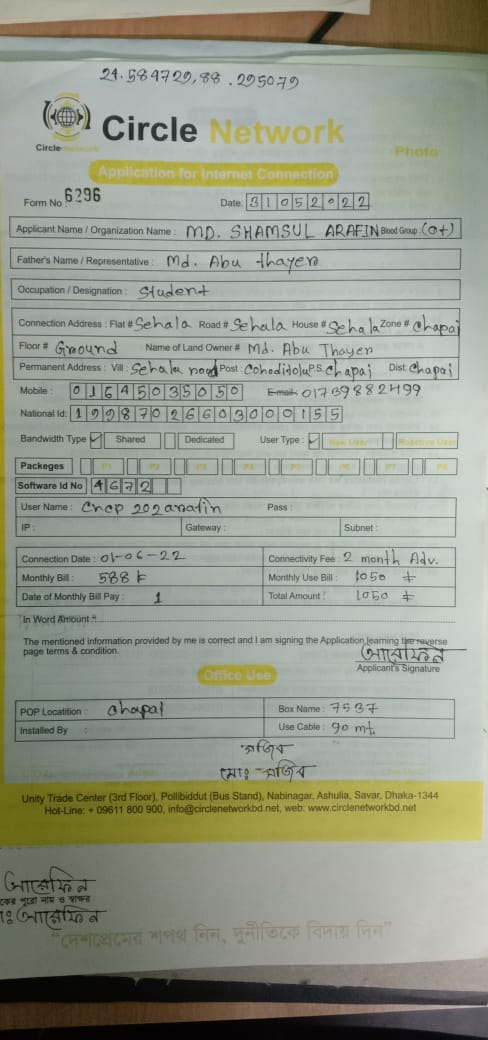 24.584729,88.295079
Circle Network
Circle Network
Photo
Application for Internet Connection
Form No 6296 Date: 31052022
Applicant Name / Organization Name : MD. SHAMSUL ARAFIN Blood Group : (O+)
Father's Name / Representative : Md. Abu thayero
Occupation / Designation : Student
Connection Address : Flat # Sehala Road # Sehala House # Sehala Zone # Chapai
Floor # Ground Name of Land Owner # Md. Abu Thayer
Permanent Address : Vill : Sehala Post : P.S. Chapai Dist: Chapai
Mobile : 01645035050 Email: 01739882499
National Id: 19987026603000155
Bandwidth Type Shared Dedicated User Type : New User Reactive User
Packeges P1 P2 P3 P4 P5 P6 P7 P8
Software Id No 4672
User Name : Pass :
IP : Gateway : Subnet :
Connection Date : 01-06-22 Connectivity Fee : 2 month Adv.
Monthly Bill : 588 Monthly Use Bill : 1050
Date of Monthly Bill Pay : 1 Total Amount : 1050
In Word Amount =
The mentioned information provided by me is correct and I am signing the Application learning the reverse
page terms & condition.
আরেফিন
Applicant's Signature
Office Use
POP Locatition : Chapai Box Name : 7537
Installed By : Use Cable : 90 mt.
সজিব
মোঃ সজিব
Unity Trade Center (3rd Floor), Pollibiddut (Bus Stand), Nabinagar, Ashulia, Savar, Dhaka-1344
Hot-Line: + 09611 800 900, info@circlenetworkbd.net, web: www.circlenetworkbd.net
আরেফিন
কের পুরো নাম ও স্বাক্ষর
াঃ আরেফিন
"দেশপ্রেমের শপথ নিন, দুর্নীতিকে বিদায় দিন"